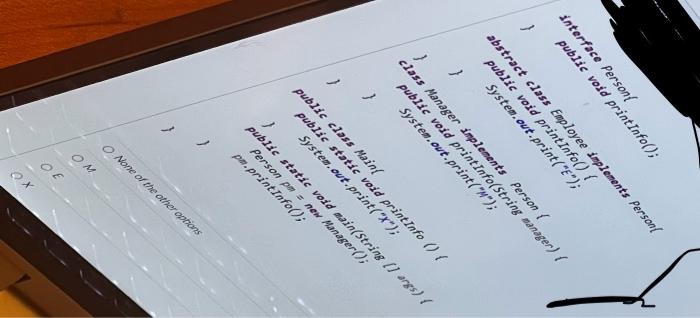 interface Person{
public void printInfo();
}
abstract class Employee implements Person{
public void printInfo() {
System.out.print("E");
}
}
class Manager implements Person {
public void printInfo(String manager) {
System.out.print("M");
}
}
public class Main{
public static void printInfo () {
System.out.print("X");
}
public static void main(String [] args) {
Person pm = new Manager();
pm.printInfo();
}
}
None of the other options
M
E
X